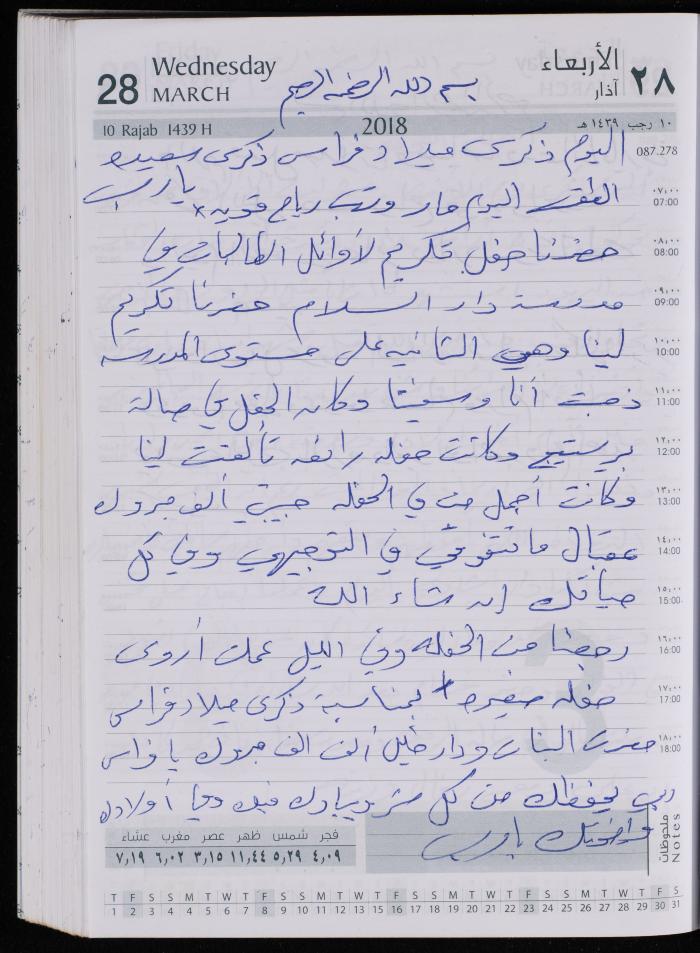 28 Wednesday MARCH
الأربعاء آذار ٢٨
بسم الله الرحمن الرحيم
10 Rajab 1439 H 2018 ١٠ رجب ١٤٣٩ هـ
087.278
اليوم ذكرى ميلاد فراس ذكرى سعيده
يا رب
٠٧:٠٠ 07:00
الطقس اليوم حار وتهب رياح قويه *
٠٨:٠٠ 08:00
حضرنا حفل تكريم لأوائل الطالبات في
٠٩:٠٠ 09:00
مدرسة دار السلام حضرنا تكريم
١٠:٠٠ 10:00
لينا وهي الثانيه على مستوى المدرسه
١١:٠٠ 11:00
ذهبت أنا و وكان الحفل في صالة
١٢:٠٠ 12:00
برستيج وكانت حفله رائعه تألقت لينا
١٣:٠٠ 13:00
وكانت أجمل من في الحفله حبيبتي ألف مبروك
١٤:٠٠ 14:00
عقبال ما تتفوقي في التوجيهي وفي كل
١٥:٠٠ 15:00
حياتك إن شاء الله
١٦:٠٠ 16:00
رجعنا من الحفله وفي الليل عملت أروى
١٧:٠٠ 17:00
حفله صغيره + بمناسبة ذكرى ميلاد فراس
١٨:٠٠ 18:00
حضرت البنات ودار خليل ألف ألف مبروك يا فراس
ربي يحفظك من كل شر ويبارك فيك وفي أولادك
واخوتك يا رب
ملاحظات Notes
فجر شمس ظهر عصر مغرب عشاء
٤,٠٩ ٥,٢٩ ١١,٤٤ ٣,١٥ ٦,٠٢ ٧,١٩
T F S S M T W T F S S M T W T F S S M T W T F S S M T W T F S
1 2 3 4 5 6 7 8 9 10 11 12 13 14 15 16 17 18 19 20 21 22 23 24 25 26 27 28 29 30 31